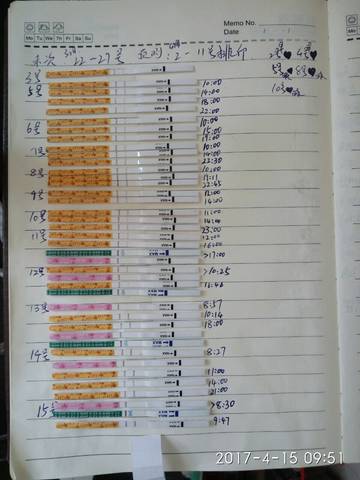 Memo No.
Mo Tu We Th Fr Sa Su
Date
末次 3月22-27号
2-11号排卵
2号♥ 4号♥
5号♥ 8号♥
10号♥
3号
5号 10:00
14:00
18:00
22:00
6号 10:00
15:00
19:00
7号 10:00
14:00
22:30
8号 10:00
17:11
22:45
9号 12:00
16:00
10号 11:00
14:00
11号 23:00
12:00
16:00
>17:00
12号 >10:25
16:46
13号 8:57
10:14
18:00
14号 8:27
11:00
14:00
21:00
15号 >8:30
9:47
2017-4-15 09:51